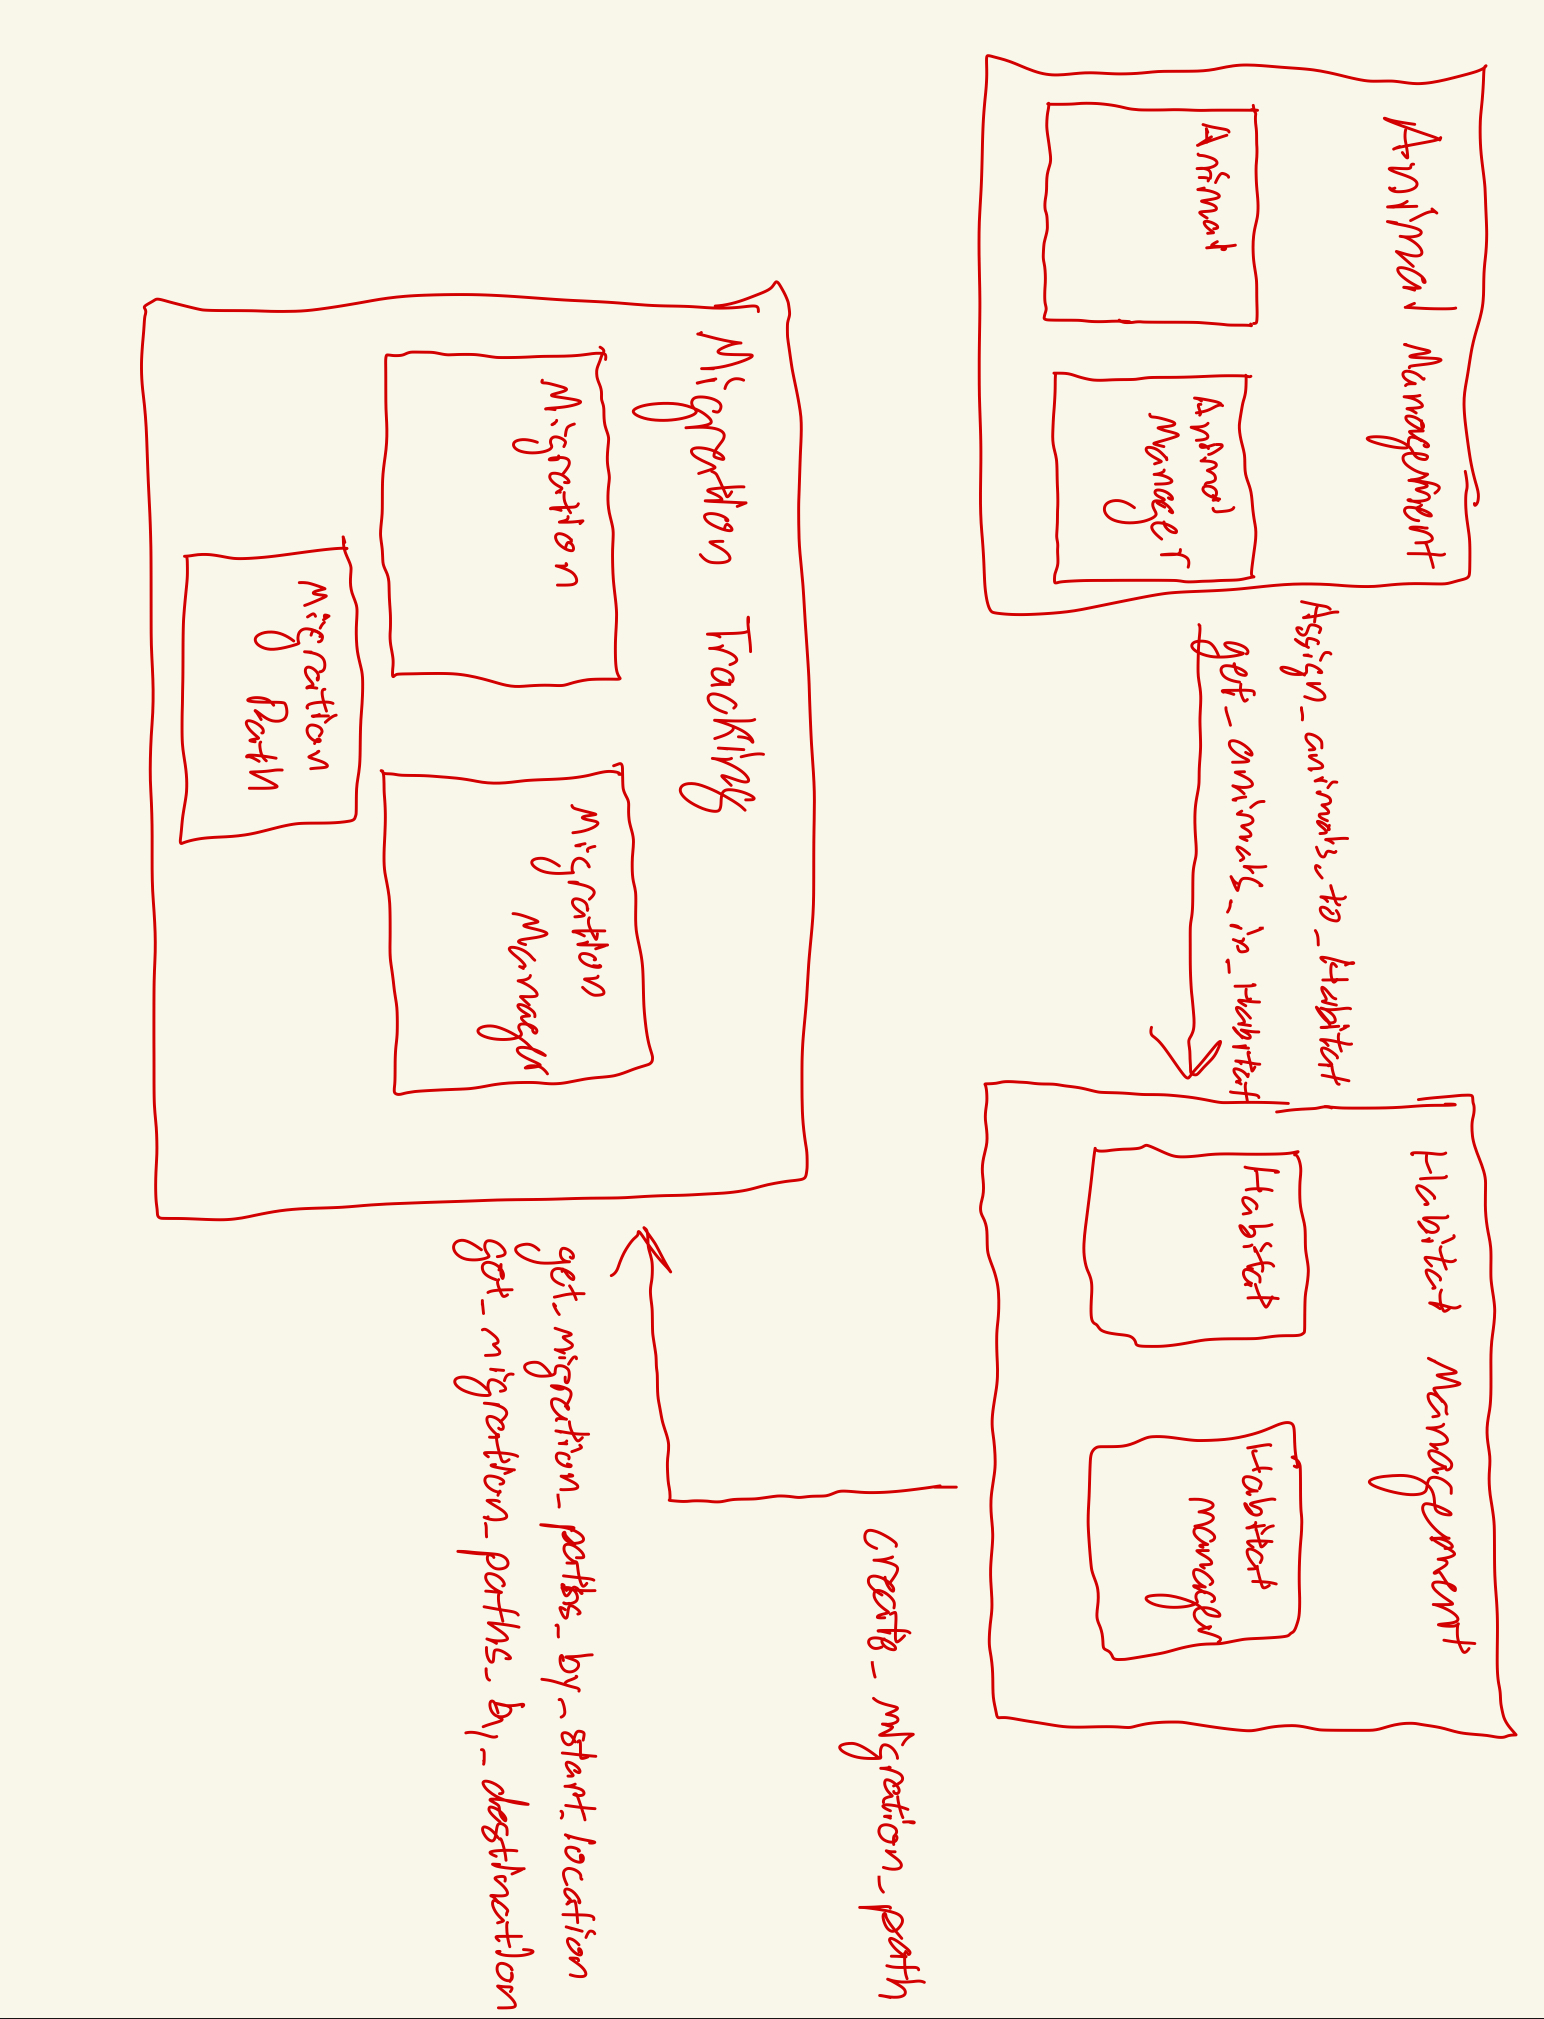 Animal Management
Animal
Animal
Manager
Assign_animals_to_Habitat
get_animals_in_Habitat
Habitat Management
Habitat
Habitat
manager
create_migration_path
Migration Tracking
Migration
Migration
Manager
Migration
Path
get_migration_paths_by_start_location
get_migration_paths_by_destination